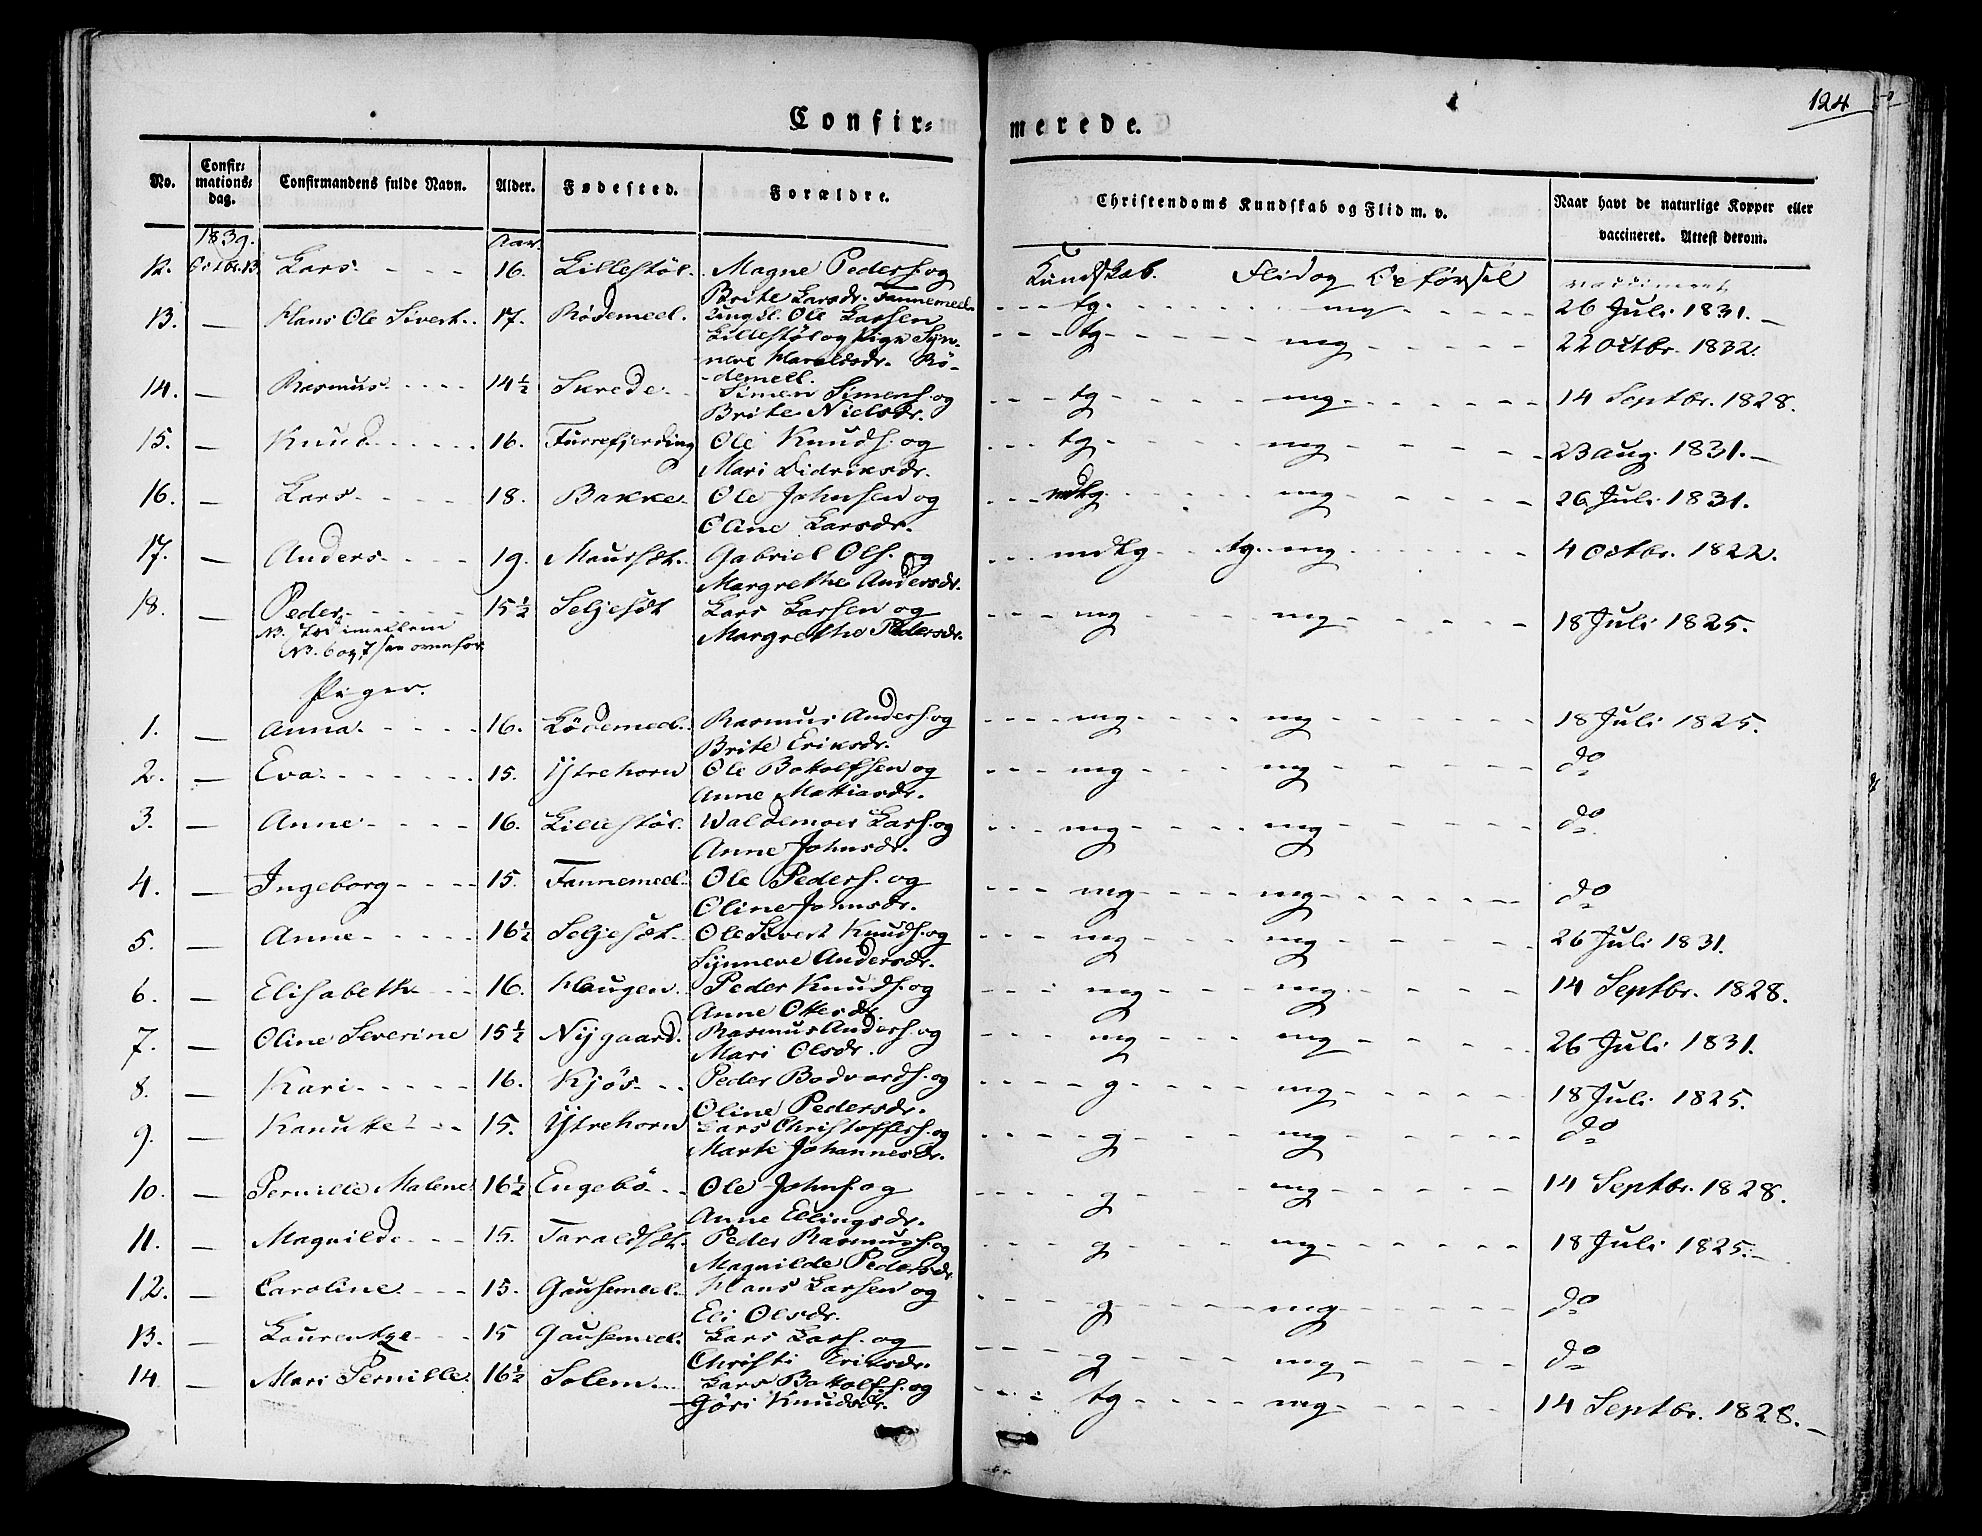 124
Confir- merede.
No. Confirmations-dag. Confirmandens fulde Navn. Alder. Fødested. Forældre. Christendoms Kundskab og Flid m. v. Naar havt de naturlige Kopper eller vaccineret. Attest derom.
1839. Aar.
Kundskab. Flid og Opførsel vaccineret
12. Octbr. 13. Lars 16. Lillestöl. Magne Peders. og tg. mg 26 Juli 1831.
Brite Larsdr. Fannemeel.
13. — Hans Ole Sivert. 17. Rödemeel. Ungkl. Ole Larsen tg mg 22 Octbr. 1832.
Lillestöl og Pige Syn-
neve Haraldsdr. Rö-
demeel.
14. — Rasmus 14½ Skrede Simen Simens. og tg mg 14 Septbr. 1828.
Brite Nielsdr.
15. — Knud 16. Furrefjerding Ole Knuds. og tg mg 23 aug. 1831.
Mari Didriksdr.
16. — Lars 18. Bakke Ole Johnsen og mdtg mg 26 Juli 1831.
Oline Larsdr.
17. — Anders 19. Maursæt. Gabriel Ols. og mdtg tg. mg 4 Octbr. 1822.
Margrethe Andersdr.
18. — Peder 15½ Seljesæt Lars Larsen og mg mg 18 Juli 1825.
Margrethe Pedersdr.
NB. imellem
No. 6 og 7 ovenfor.
Piger.
1. — Anna 16. Lödemeel. Rasmus Anders. og mg mg 18 Juli 1825.
Brite Eriksdr.
2. — Eva 15. Ytrehorn Ole Botolfsen og mg mg do
Anne Mattiasdr.
3. — Anne 16. Lillestöl. Waldemoer Lars. og mg mg do
Anne Johnsdr.
4. — Ingeborg 15. Fannemeel. Ole Peders. og mg mg do
Oline Johnsdr.
5. — Anne 16½ Seljesæt. Ole Sivert Knuds. og mg mg 26 Juli 1831.
Synneve Andersdr.
6. — Elisabeth 16. Haugen. Peder Knuds. og mg mg 14 Septbr. 1828.
Anne Ottesdr.
7. — Oline Severine 15½ Nygaard. Rasmus Anders. og mg mg 26 Juli 1831.
Mari Olsdr.
8. — Kari 16. Kjös Peder Bodvards. og g mg 18 Juli 1825.
Oline Pedersdr.
9. — Kanutte 15. Ytrehorn Lars Christoffers. og g mg do
Marte Johannesdr.
10. — Pernille Malene 16½ Engebö Ole Johns. og g mg 14 Septbr. 1828.
Anne Ellingsdr.
11. — Magnilde 15. Taraldsæt. Peder Rasmuss. og g mg 18 Juli 1825.
Magnilde Pedersdr.
12. — Caroline 15. Gausemeel. Hans Larsen og g mg do
Eli Olsdr.
13. — Laurentze 15 Gausemeel. Lars Lars. og g mg do
Christi Eriksdr.
14 — Mari Pernille 16½ Solem Lars Botolfs. og tg mg 14 Septbr. 1828.
Göri Knudsdr.